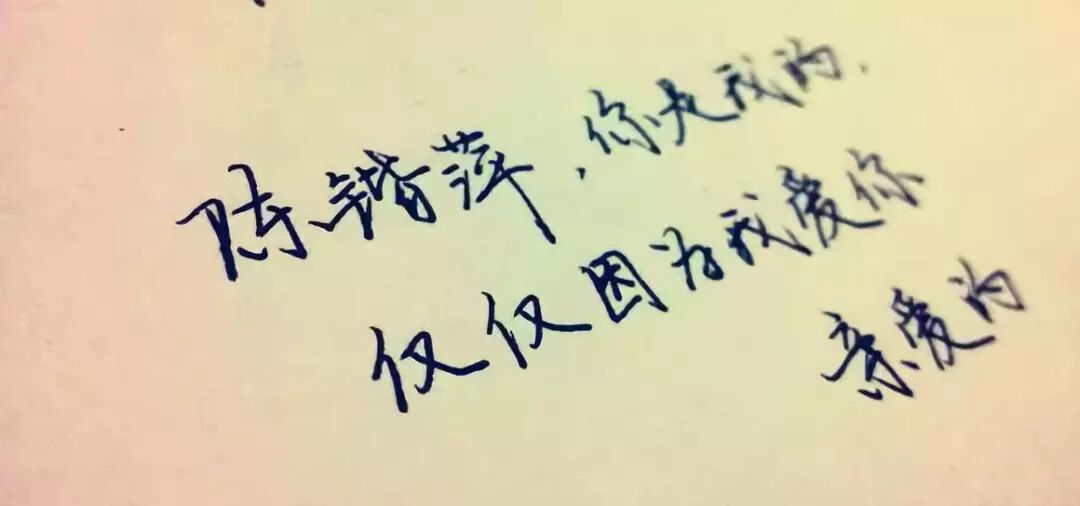 陈锴萍,你是我的.
仅仅因为我爱你
亲爱的